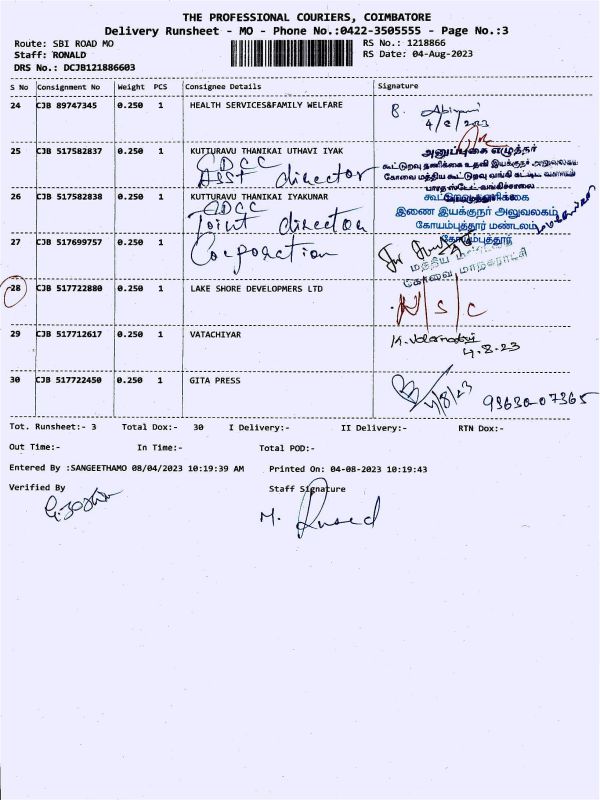 THE PROFESSIONAL COURIERS, COIMBATORE
Delivery Runsheet - MO - Phone No.:0422-3505555 - Page No.:3
Route: SBI ROAD MO
RS No.: 1218866
Staff: RONALD
RS Date: 04-Aug-2023
DRS No.: DCJB121886603
S No Consignment No Weight PCS Consignee Details Signature
24 CJB 89747345 0.250 1 HEALTH SERVICES&FAMILY WELFARE
4/8/2023
25 CJB 517582837 0.250 1 KUTTURAVU THANIKAI UTHAVI IYAK
அனுப்புகை எழுத்தர்
கூட்டுறவு தணிக்கை உதவி இயக்குநர் அலுவலகம்
கோவை மத்திய கூட்டுறவு வங்கி கட்டிட வளாகம்
CDCC
Asst director
26 CJB 517582838 0.250 1 KUTTURAVU THANIKAI IYAKUNAR
CDCC
Joint director
இணை இயக்குநர் அலுவலகம்
கோயம்புத்தூர் மண்டலம்
கோயம்புத்தூர்
27 CJB 517699757 0.250 1
Corporation
கோவை மாநகராட்சி
28 CJB 517722880 0.250 1 LAKE SHORE DEVELOPMERS LTD
N/S/C
29 CJB 517712617 0.250 1 VATACHIYAR
4.8.23
30 CJB 517722450 0.250 1 GITA PRESS
4/8/23
93630-07365
Tot. Runsheet:- 3 Total Dox:- 30 I Delivery:- II Delivery:- RTN Dox:-
Out Time:- In Time:- Total POD:-
Entered By :SANGEETHAMO 08/04/2023 10:19:39 AM Printed On: 04-08-2023 10:19:43
Verified By Staff Signature